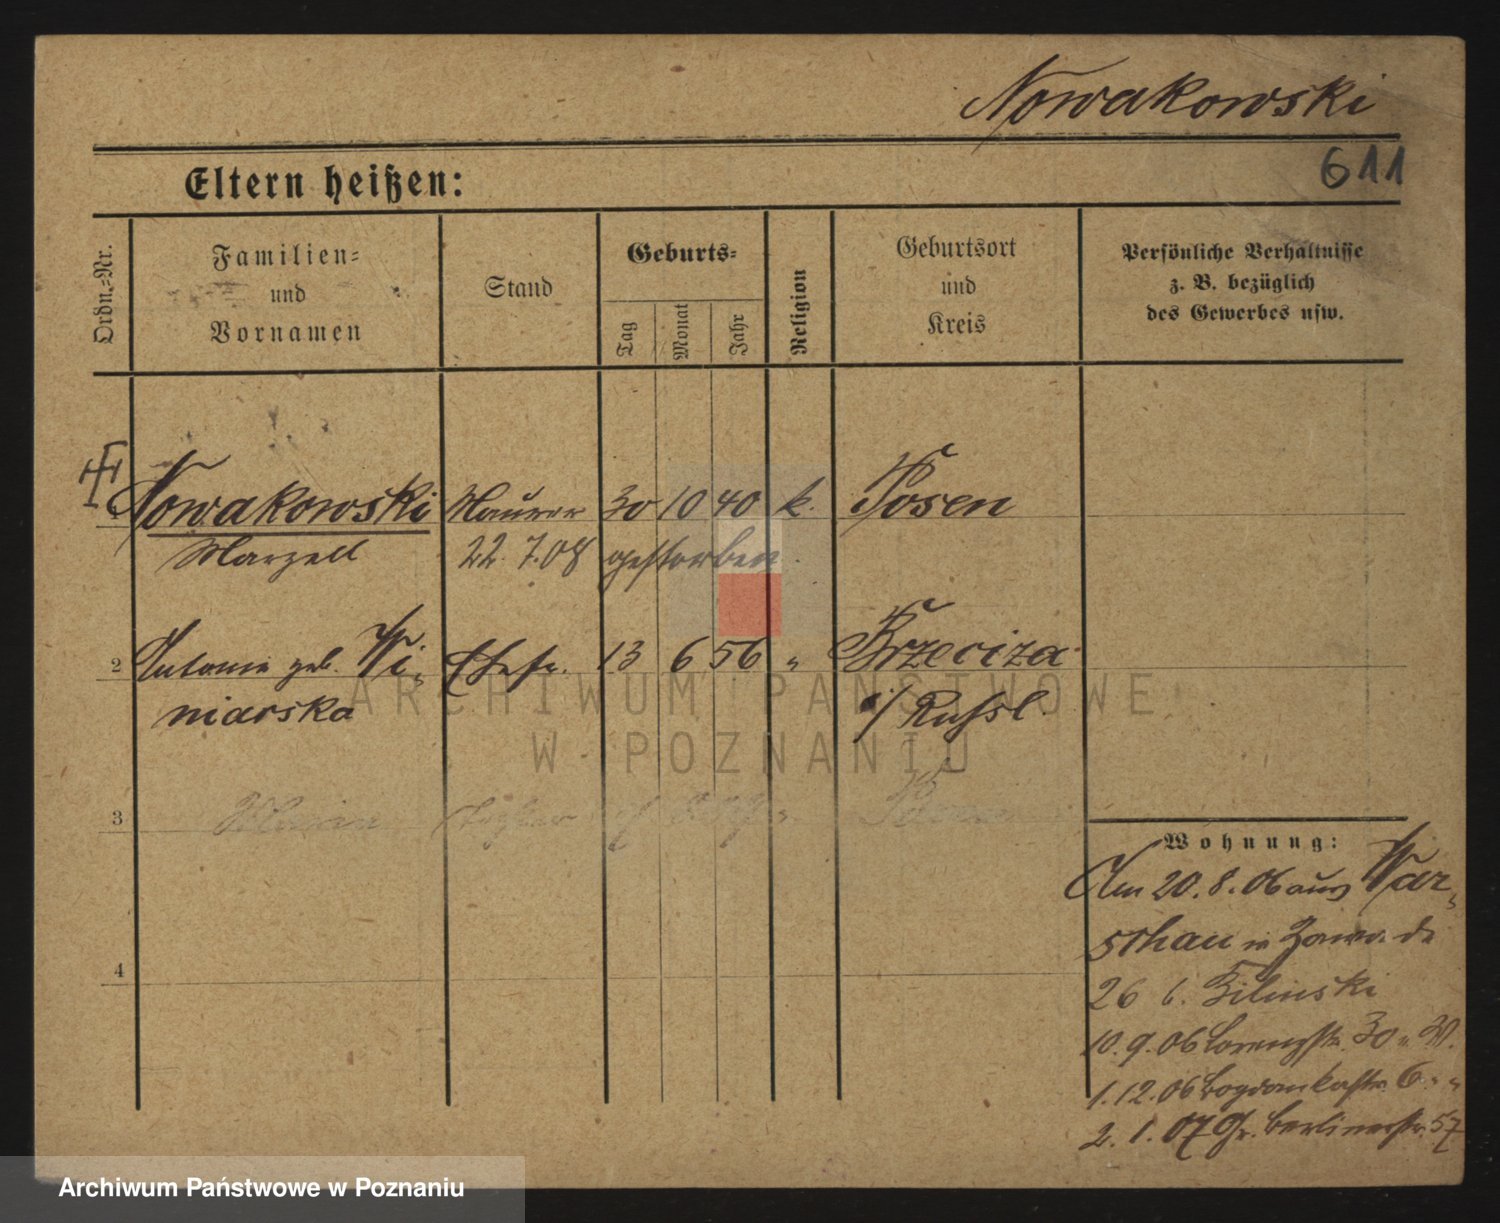 Nowakowski
611
Eltern heißen:
Ordn.-Nr.
Familien-
und
Vornamen
Stand
Geburts-
Tag
Monat
Jahr
Religion
Geburtsort
und
Kreis
Persönliche Verhältnisse
z. B. bezüglich
des Gewerbes usw.
1 Nowakowski Maurer 30 10 40 k. Posen
Marzell 22.7.08 gestorben
2 Antonie geb. Wi- Ehefr. 13 6 56 " Brzeciza
niarska i/ Russl.
3
4
Wohnung:
Am 20.8.06 aus War-
schau in
26 b. Kilinski
10.9.06 Lorenzstr. 30
1.12.06 Bogdankastr. 6
2.1.07 Gr. Berlinerstr. 57
ARCHIWUM PAŃSTWOWE
W POZNANIU
Archiwum Państwowe w Poznaniu